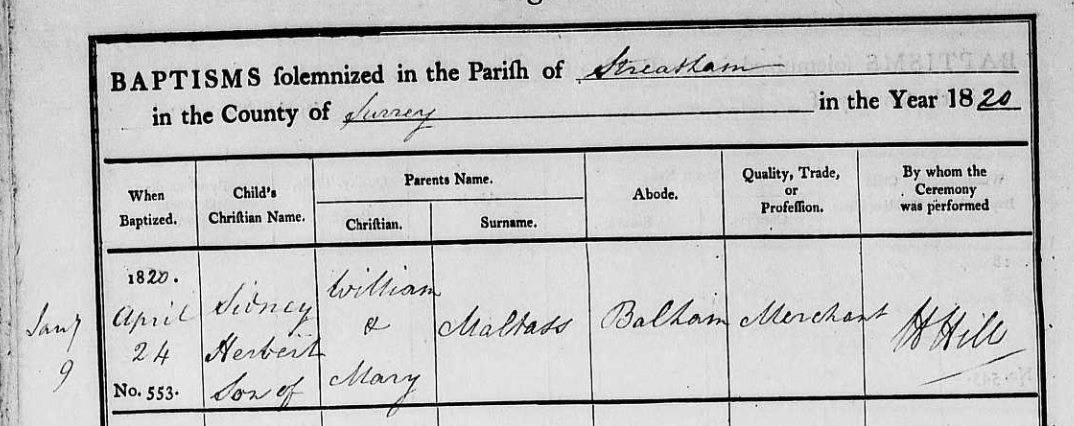 BAPTISMS ſolemnized in the Pariſh of Streatham
in the County of Surrey in the Year 1820
When Baptized.
Child's Chriſtian Name.
Parents Name.
Chriſtian.
Surname.
Abode.
Quality, Trade, or Profeſſion.
By whom the Ceremony was performed
1820.
April
24
No. 553.
Jany
9
Sidney
Herbert
Son of
William
&
Mary
Maltass
Balham
Merchant
H Hill